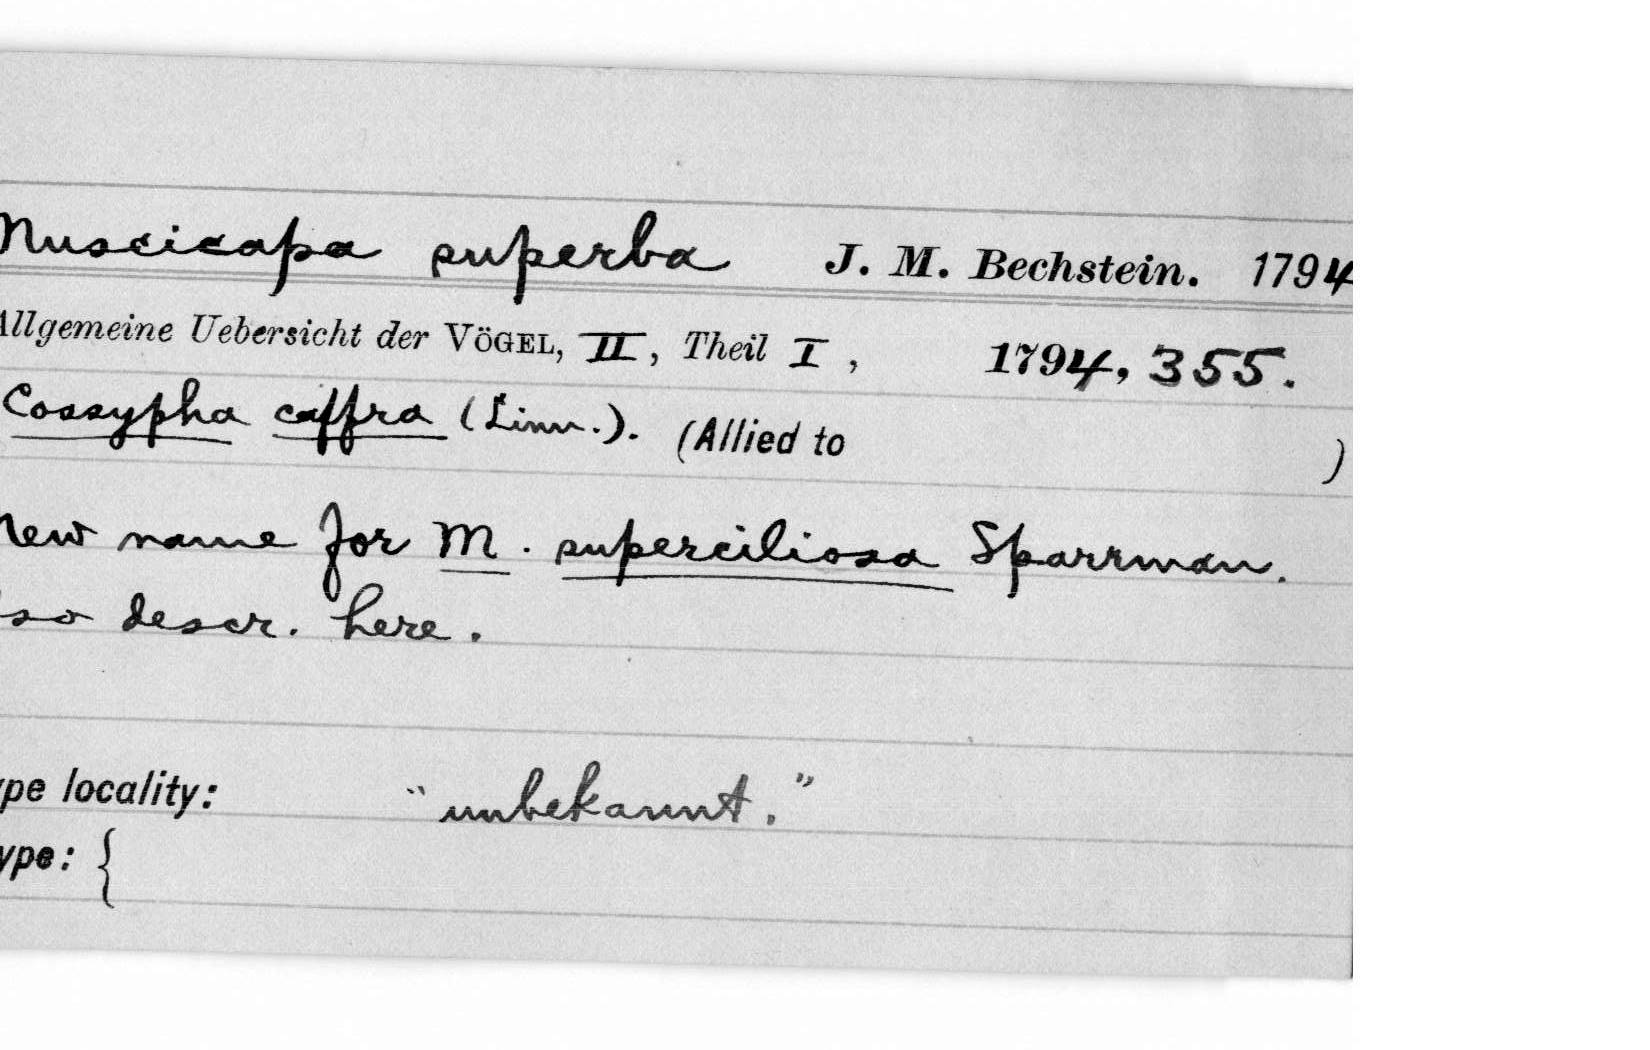 Muscicapa superba J. M. Bechstein. 1794
Allgemeine Uebersicht der VÖGEL, II, Theil I, 1794, 355.
Cossypha caffra (Linn.). (Allied to )
New name for M. superciliosa Sparrman.
lso descr. here.
ype locality: "unbekannt."
ype: {